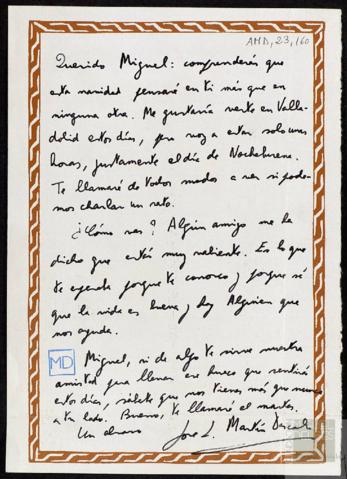 AMD, 23, 160
Querido Miguel: comprenderás que
esta navidad pensaré en ti más que en
ninguna otra. Me gustaría verte en Valla-
dolid estos días, pero voy a estar solo unas
horas, justamente el día de Nochebuena.
Te llamaré de todos modos a ver si pode-
mos charlar un rato.
¿Cómo vas? Algún amigo me ha
dicho que estás muy valiente. Es lo que
te porque te conozco y porque sé
que la vida es buena y hay Alguien que
nos ayuda.
MD
Miguel, si de algo te sirve nuestra
amistad para llenar ese hueco que sentirás
estos días, sábete que nos tienes más que nunca
a tu lado. Bueno, te llamaré el martes.
Un abrazo
Jose L. Martín Descalzo